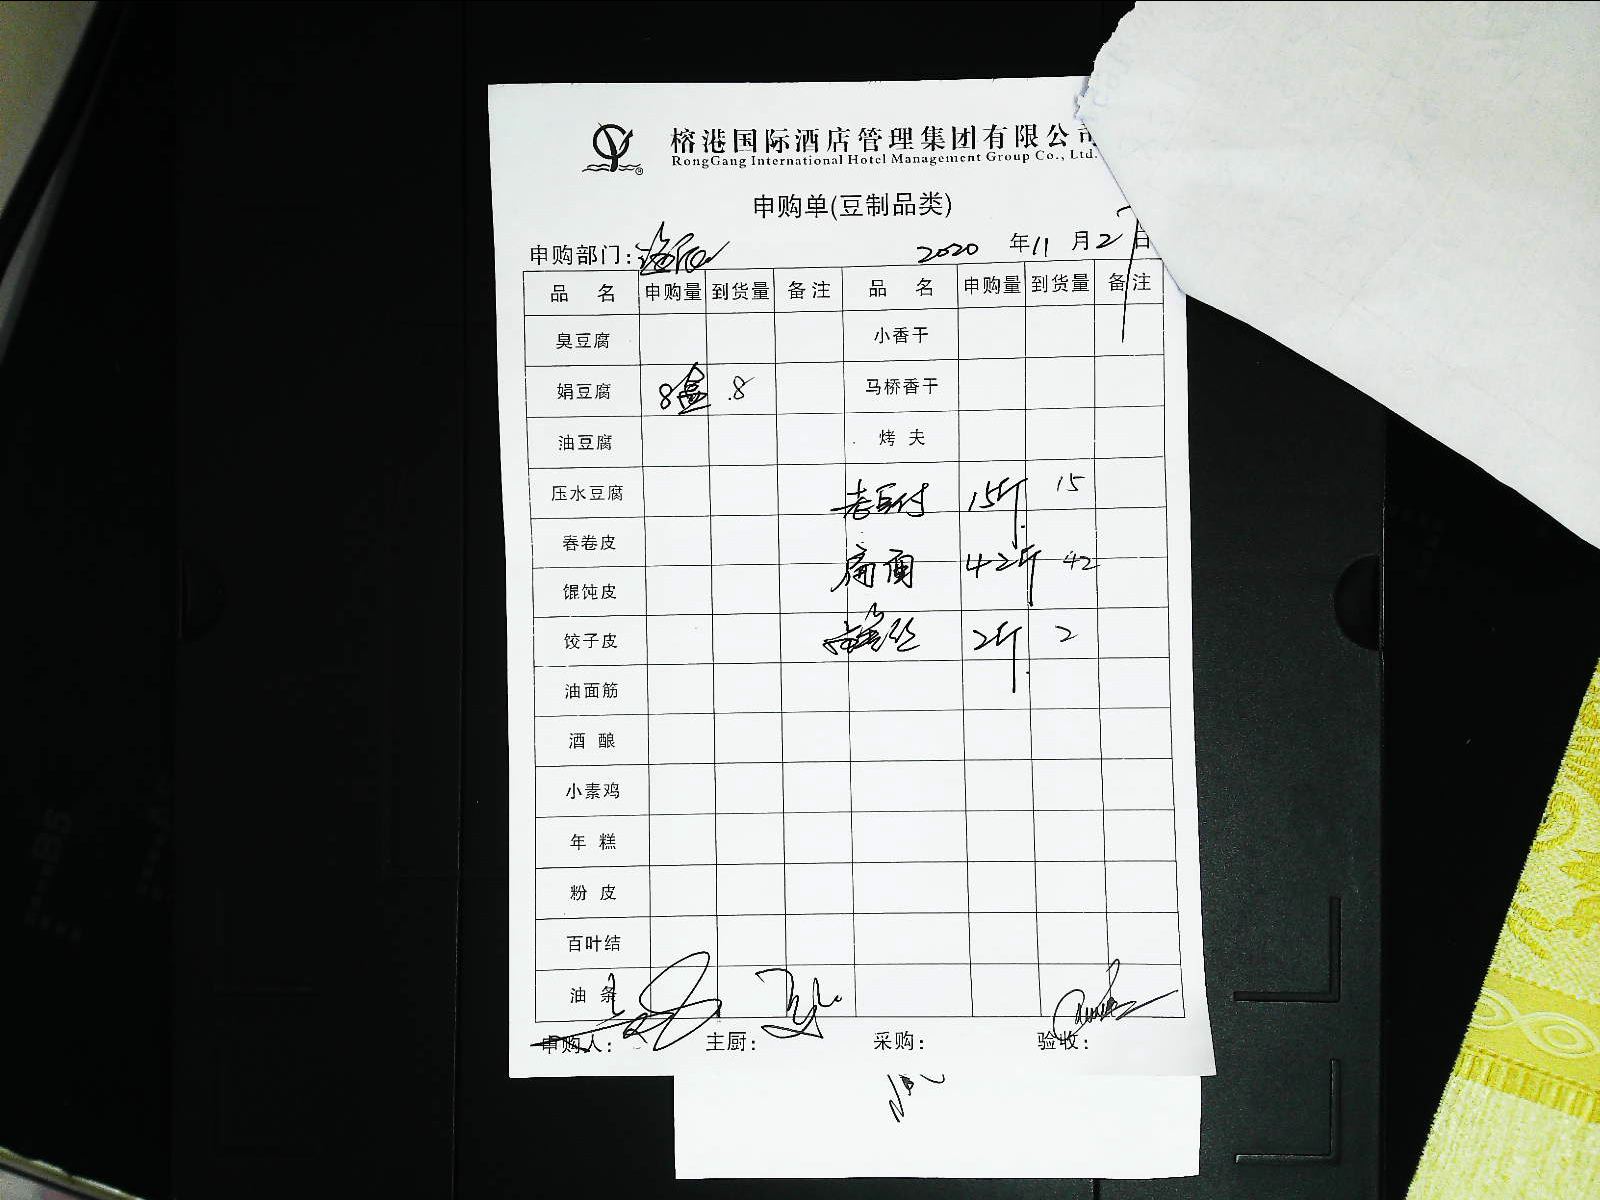 榕港国际酒店管理集团有限公司
RongGang International Hotel Management Group Co., Ltd.
申购单(豆制品类)
申购部门: 2020 年 11 月 27 日
品 名 申购量 到货量 备注 品 名 申购量 到货量 备注
臭豆腐 小香干
娟豆腐 8盒 8 马桥香干
油豆腐 烤 夫
压水豆腐 老豆付 15斤 15
春卷皮
馄饨皮 42斤 42
饺子皮 2斤 2
油面筋
酒 酿
小素鸡
年 糕
粉 皮
百叶结
油 条
申购人: 主厨: 采购: 验收: